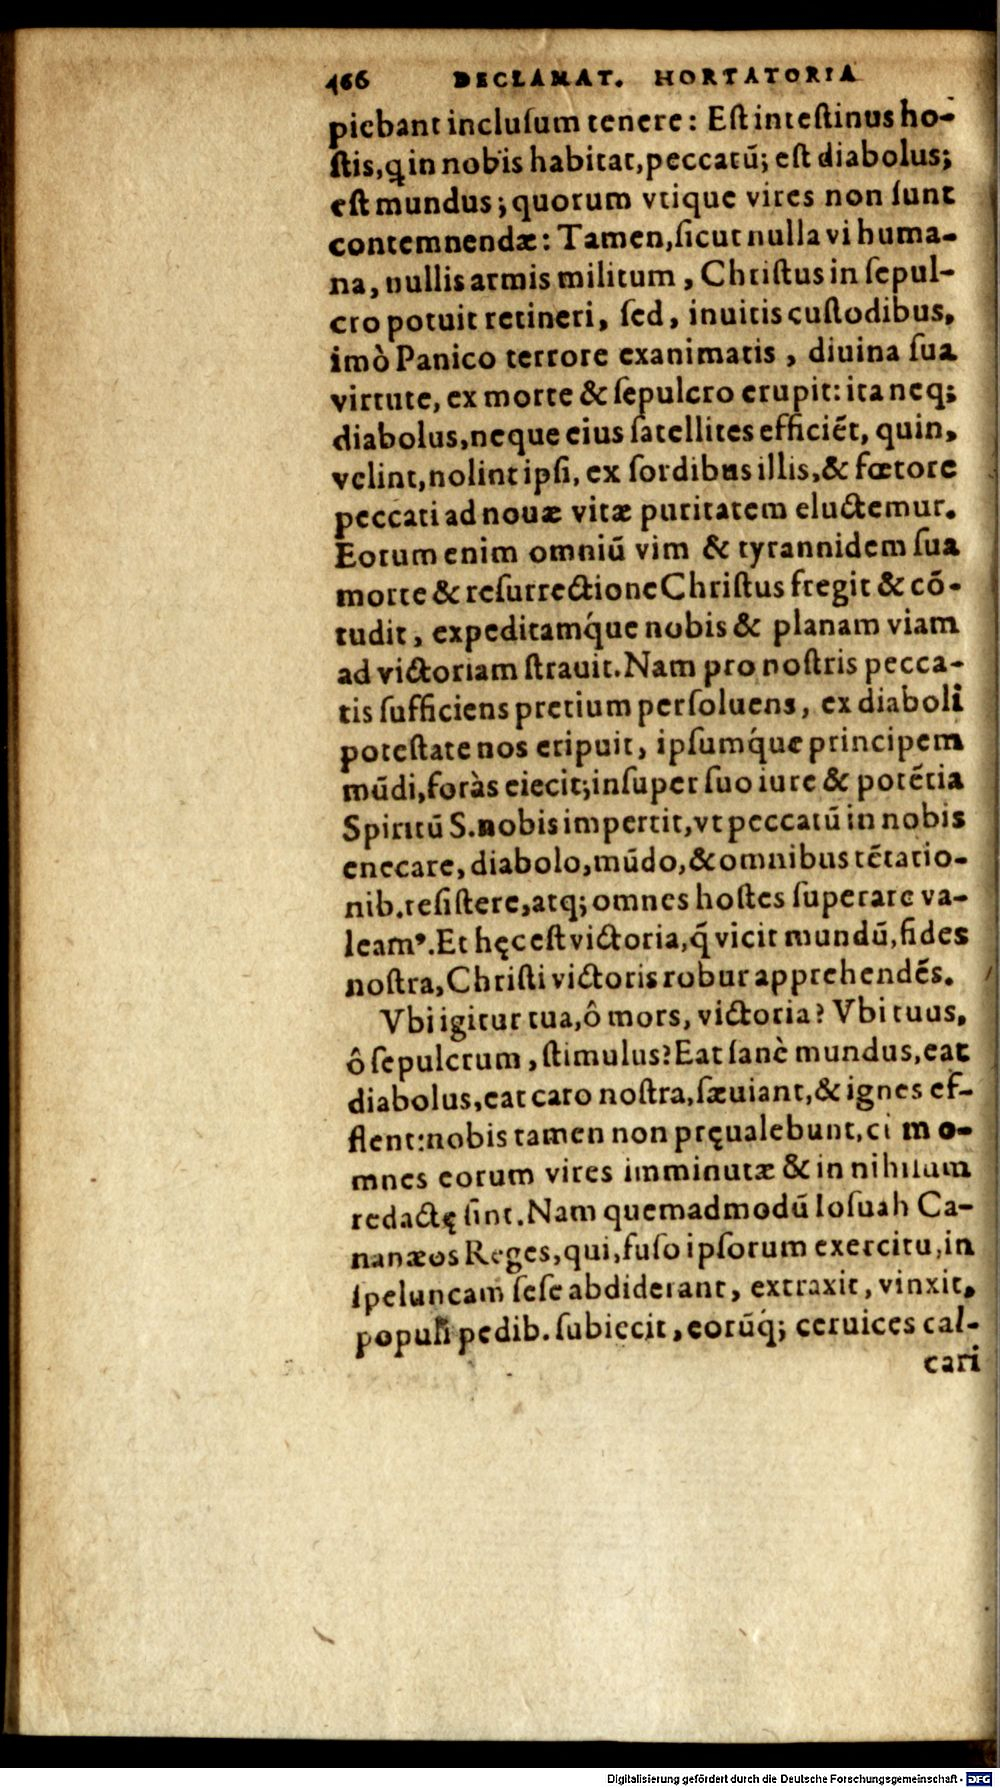 466 DECLAMAT. HORTATORIA
piebant incluſum tenere: Eſt inteſtinus ho-
ſtis, q in nobis habitat, peccatū; eſt diabolus;
eſt mundus; quorum vtique vires non ſunt
contemnendæ: Tamen, ſicut nulla vi huma-
na, nullis armis militum, Chriſtus in ſepul-
cro potuit retineri, ſed, inuitis cuſtodibus,
imò Panico terrore exanimatis, diuina ſua
virtute, ex morte & ſepulcro erupit: ita neq;
diabolus, neque eius ſatellites efficiēt, quin,
velint, nolint ipſi, ex ſordibus illis, & fœtore
peccati ad nouæ vitæ puritatem eluctemur.
Eorum enim omniū vim & tyrannidem ſua
morte & reſurrectione Chriſtus fregit & cō-
tudit, expeditamq́ue nobis & planam viam
ad victoriam ſtrauit. Nam pro noſtris pecca-
tis ſufficiens pretium perſoluens, ex diaboli
poteſtate nos eripuit, ipſumq́ue principem
mūdi, foràs eiecit; inſuper ſuo iure & potētia
Spiritū S. nobis impertit, vt peccatū in nobis
enecare, diabolo, mūdo, & omnibus tētatio-
nib. reſiſtere, atq; omnes hoſtes ſuperare va-
leamꝰ. Et hęc eſt victoria, q̄ vicit mundū, fides
noſtra, Chriſti victoris robur apprehendēs.
Vbi igitur tua, ô mors, victoria? Vbi tuus,
ô ſepulcrum, ſtimulus? Eat ſanè mundus, eat
diabolus, eat caro noſtra, ſæuiant, & ignes ef-
flent: nobis tamen non pręualebunt, ci m o-
mnes eorum vires imminutæ & in nihilum
redactę ſint. Nam quemadmodū Ioſuah Ca-
nanæos Reges, qui, fuſo ipſorum exercitu, in
ſpeluncam ſeſe abdiderant, extraxit, vinxit,
populi pedib. ſubiecit, eorūq́; ceruices cal-
cari
Digitalisierung gefördert durch die Deutsche Forschungsgemeinschaft - DFG